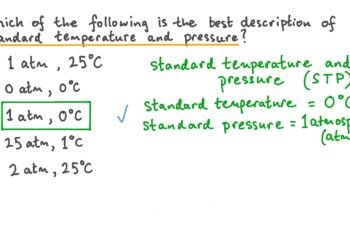 which of the following is the best description of
standard temperature and pressure?
1 atm , 25°C
0 atm , 0°C
1 atm , 0°C
25 atm , 1°C
2 atm , 25°C
standard temperature and
pressure (STP)
standard temperature = 0°C
standard pressure = 1 atmosp
(atm